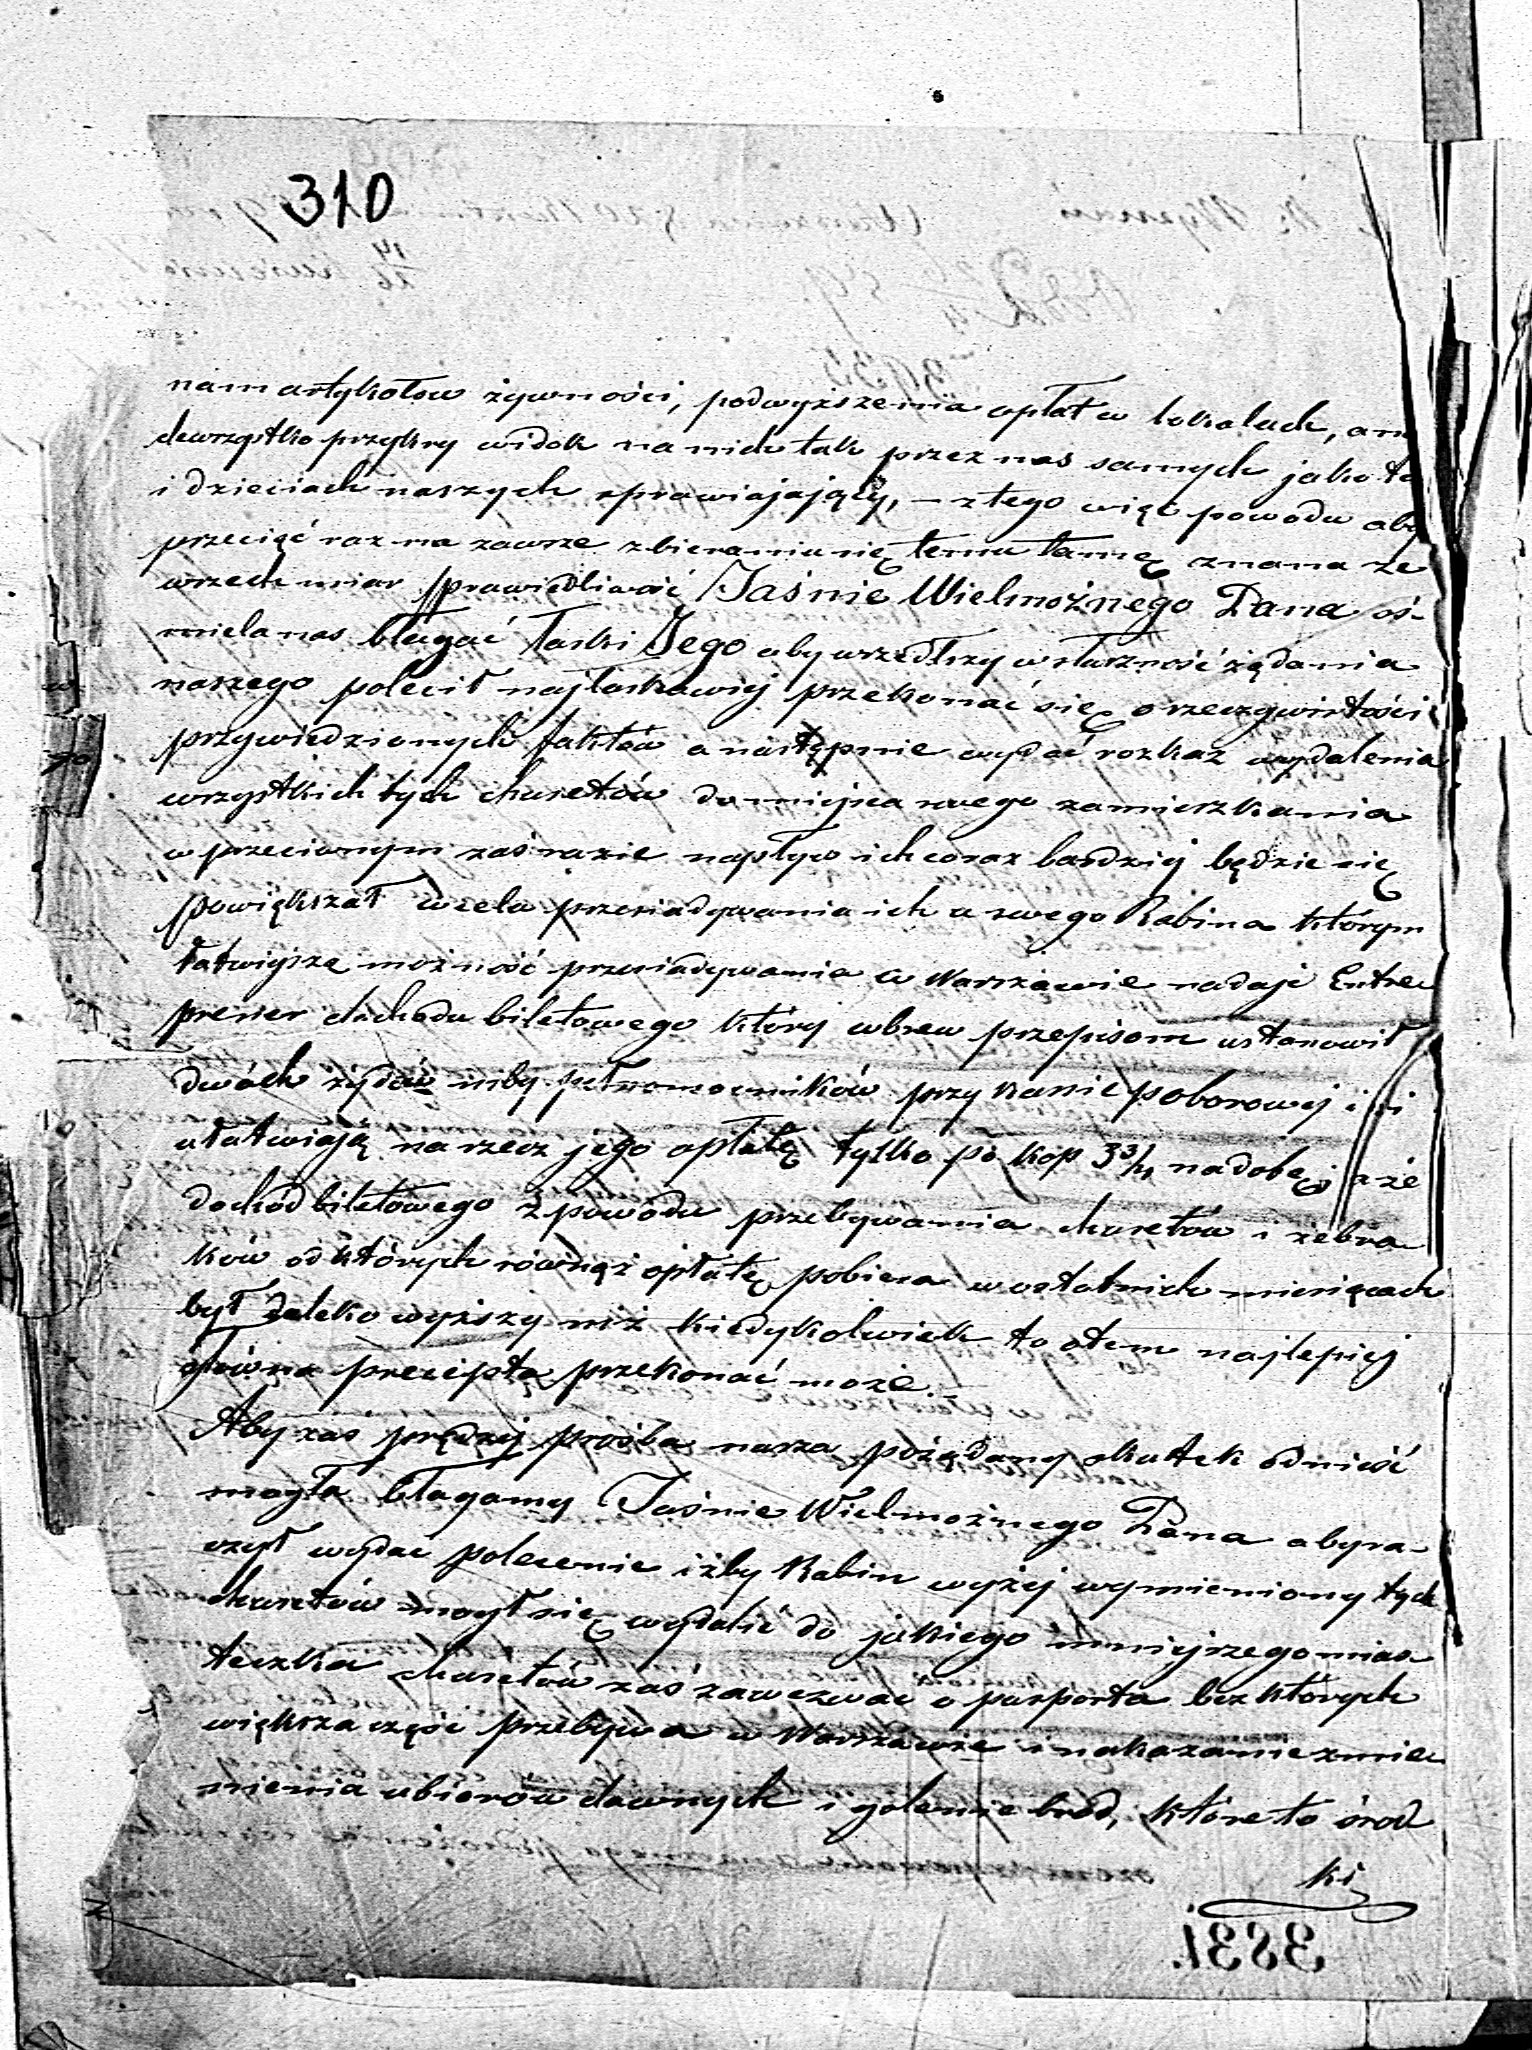 310
nam artykołow żywności, podwyższenia opłat w lokalach, a na
dewszystko przykry widok na nich tak przez nas samych jako to
i dzieciach naszych sprawiajający, – z tego więc powodu aby
przeciąć raz na zawsze zbieraniu się temu tamę znana ze
wszech miar sprawiedliwość Jaśnie Wielmożnego Pana oś-
miela nas błagać łaski Jego aby wszedłszy w słuszność żądania
naszego polecił najłaskawiej przekonać się o rzeczywistości
przywiedzionych faktów a następnie wydać rozkaz wydalenia
wszystkich tych chusetów do miejsca swego zamieszkania
w przeciwnym zaś razie napływ ich coraz bardziej będzie się
powiększał w celu przesiadywania ich u swego Rabina którym
łatwiejszą możność przesiadywania w Warszawie nadaje Entre
prener dochodu biletowego który wbrew przepisom ustanowił
dwóch żydów niby pełnomocników przy kasie poborowej i ci
ułatwiają na rzecz jego opłatę tylko po kop 3 3/4 na dobę, a że
dochód biletowego z powodu przebywania chusetów i żebra
ków od których również opłatę pobiera w ostatnich miesiącach
był daleko wyższy niż kiedykolwiek to o tem najlepiej
główna precepta przekonać może. –
Aby zaś prędzej prośba nasza pożądany skutek odnieść
mogła błagamy Jaśnie Wielmożnego Pana aby ra-
czył wydać polecenie iżby Rabin wyżej wymieniony tych
chusetów mogł się wydalić do jakiego mniejszego mias
teczka chusetów zaś zawezwać o paszporta bez których
większa część przebywa w Warszawie i nakazanie zmie
nienia ubiorów dawnych i golenie bród, które to środ
ki
3831.